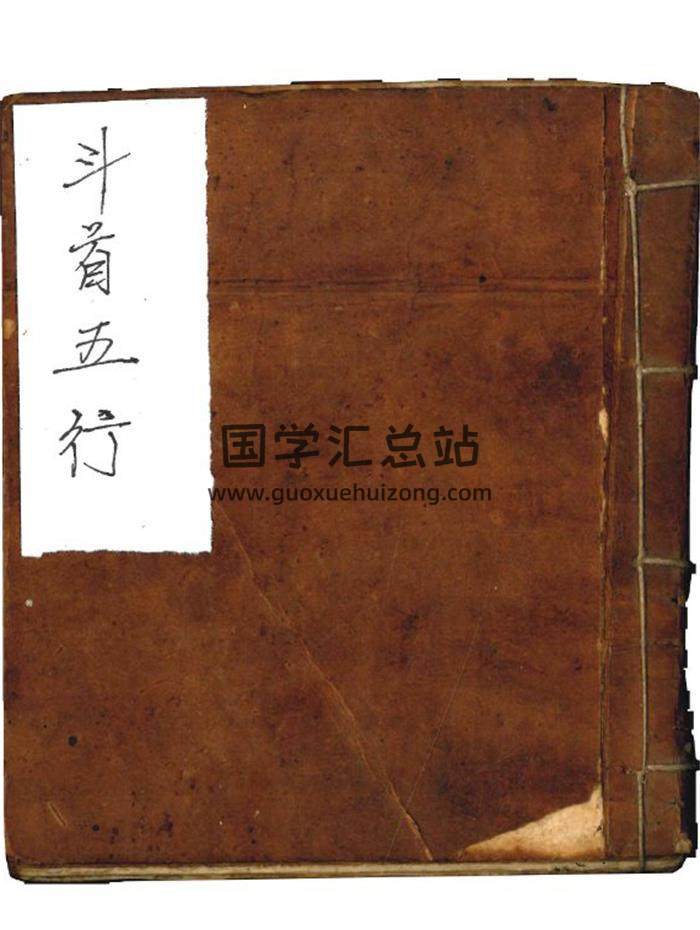 斗首五行
国学汇总站
www.guoxuehuizong.com